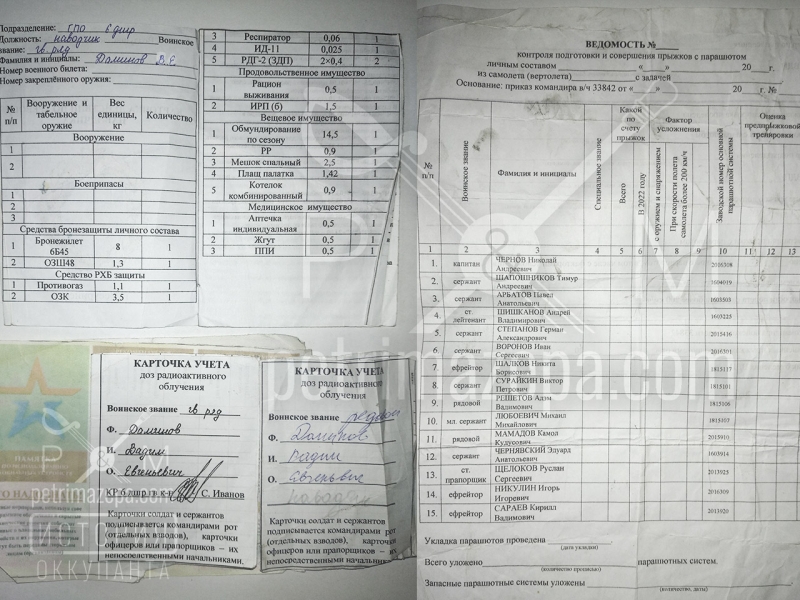 Подразделение: ГПО 6 дшр
Должность: наводчик Воинское
звание: гв. ряд
Фамилия и инициалы: Далинов В.Е
Номер военного билета:
Номер закреплённого оружия:
№ п/п Вооружение и табельное оружие Вес единицы, кг Количество
Вооружение
1
2
Боеприпасы
1
2
3
Средства бронезащиты личного состава
1 Бронежилет 6Б45 8 1
2 ОЗШ48 1,3 1
Средство РХБ защиты
1 Противогаз 1,1 1
2 ОЗК 3,5 1
3 Респиратор 0,06 1
4 ИД-11 0,025 1
5 РДГ-2 (ЗДП) 2×0,4 2
Продовольственное имущество
1 Рацион выживания 0,5 1
2 ИРП (б) 1,5 1
Вещевое имущество
1 Обмундирование по сезону 14,5 1
2 РР 0,9 1
3 Мешок спальный 2,5 1
4 Плащ палатка 1,42 1
5 Котелок комбинированный 0,9 1
Медицинское имущество
1 Аптечка индивидуальная 0,5 1
2 Жгут 0,5 1
3 ППИ 0,5 1
КАРТОЧКА УЧЕТА
доз радиоактивного
облучения
Воинское звание гв. ряд
Ф. Далинов
И. Вадим
О. Евгеньевич
С. Иванов
Карточки солдат и сержантов
подписывается командирами рот
(отдельных взводов), карточки
офицеров или прапорщиков – их
непосредственными начальниками.
КАРТОЧКА УЧЕТА
доз радиоактивного
облучения
Воинское звание рядовой
Ф. Далинов
И. Вадим
О. Евгеньевич
Карточки солдат и сержантов
подписывается командирами рот
(отдельных взводов), карточки
офицеров или прапорщиков – их
непосредственными начальниками.
ВЕДОМОСТЬ №
контроля подготовки и совершения прыжков с парашютом
личным составом «    » 20    г.
из самолета (вертолета) с задачей
Основание: приказ командира в/ч 33842 от «    » 20    г. №
№ п/п Воинское звание Фамилия и инициалы Специальное звание Какой по счету прыжок Всего В 2022 году Фактор усложнения с оружием и снаряжением При скорости полета самолета более 200 км/ч Заводской номер основной парашютной системы Оценка предпрыжковой тренировки
1 2 3 4 5 6 7 8 9 10 11 12 13
1. капитан ЧЕРНОВ Николай Андреевич 2016308
2. сержант ШАПОШНИКОВ Тимур Андреевич 1604019
3. сержант АРБАТОВ Павел Анатольевич 1603503
4. ст. лейтенант ШИШКАНОВ Андрей Владимирович 1693225
5. сержант СТЕПАНОВ Герман Александрович 2015416
6. сержант ВОРОНОВ Иван Сергеевич 2016301
7. ефрейтор ШАЛКОВ Никита Борисович 1815117
8. сержант СУРАЙКИН Виктор Петрович 1815101
9. рядовой РЕШЕТОВ Адэм Вадимович 1815106
10. мл. сержант ЛЮБОЕВИЧ Михаил Михайлович 1815103
11. рядовой МАМАДОВ Камол Кудусович 2013910
12. сержант ЧЕРНЯВСКИЙ Эдуард Анатольевич 1603914
13. ст. прапорщик ЩЕЛОКОВ Руслан Сергеевич 2013925
14. ефрейтор НИКУЛИН Игорь Игоревич 2013909
15. ефрейтор САРАЕВ Кирилл Вадимович 2013920
Укладка парашютов проведена
(дата укладки)
Всего уложено парашютных систем.
(количество прописью)
Запасные парашютные системы уложены
(количество, даты)
petrimazepa.com
ИСТОРИЯ
ОККУПАНТА